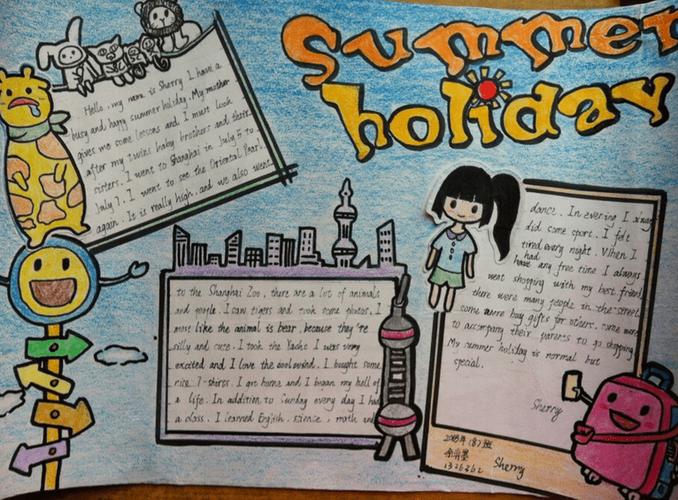 Summer
holiday
Hello, my name is Sherry. I have a
busy and happy summer holiday. My mother
gives me some lessons and I must look
after my twins baby brothers and their
sisters. I went to Shanghai in July 5 to
July 7. I went to see the Oriental Pearl
again. It is really high. and we also went
to the Shanghai Zoo, there are a lot of animals
and people. I saw tigers and took some photos. I
most like the animal is bear, because they're
silly and cute. I took the Yacht I was very
excited and I love the
I bought some
nice T-shirts. I got home and I began my hell of
a life. In addition to Sunday every day I had
a class. I learned English, science, math and
dance. In evening I
did some sport. I felt
tired every night. When I
had
have any free time I always
went shopping with my best friend
there were many people in the street
some were buy gifts for others. some were
to accompany their parents to go shopping.
My summer holiday is normal but
special.
Sherry
班
Sherry